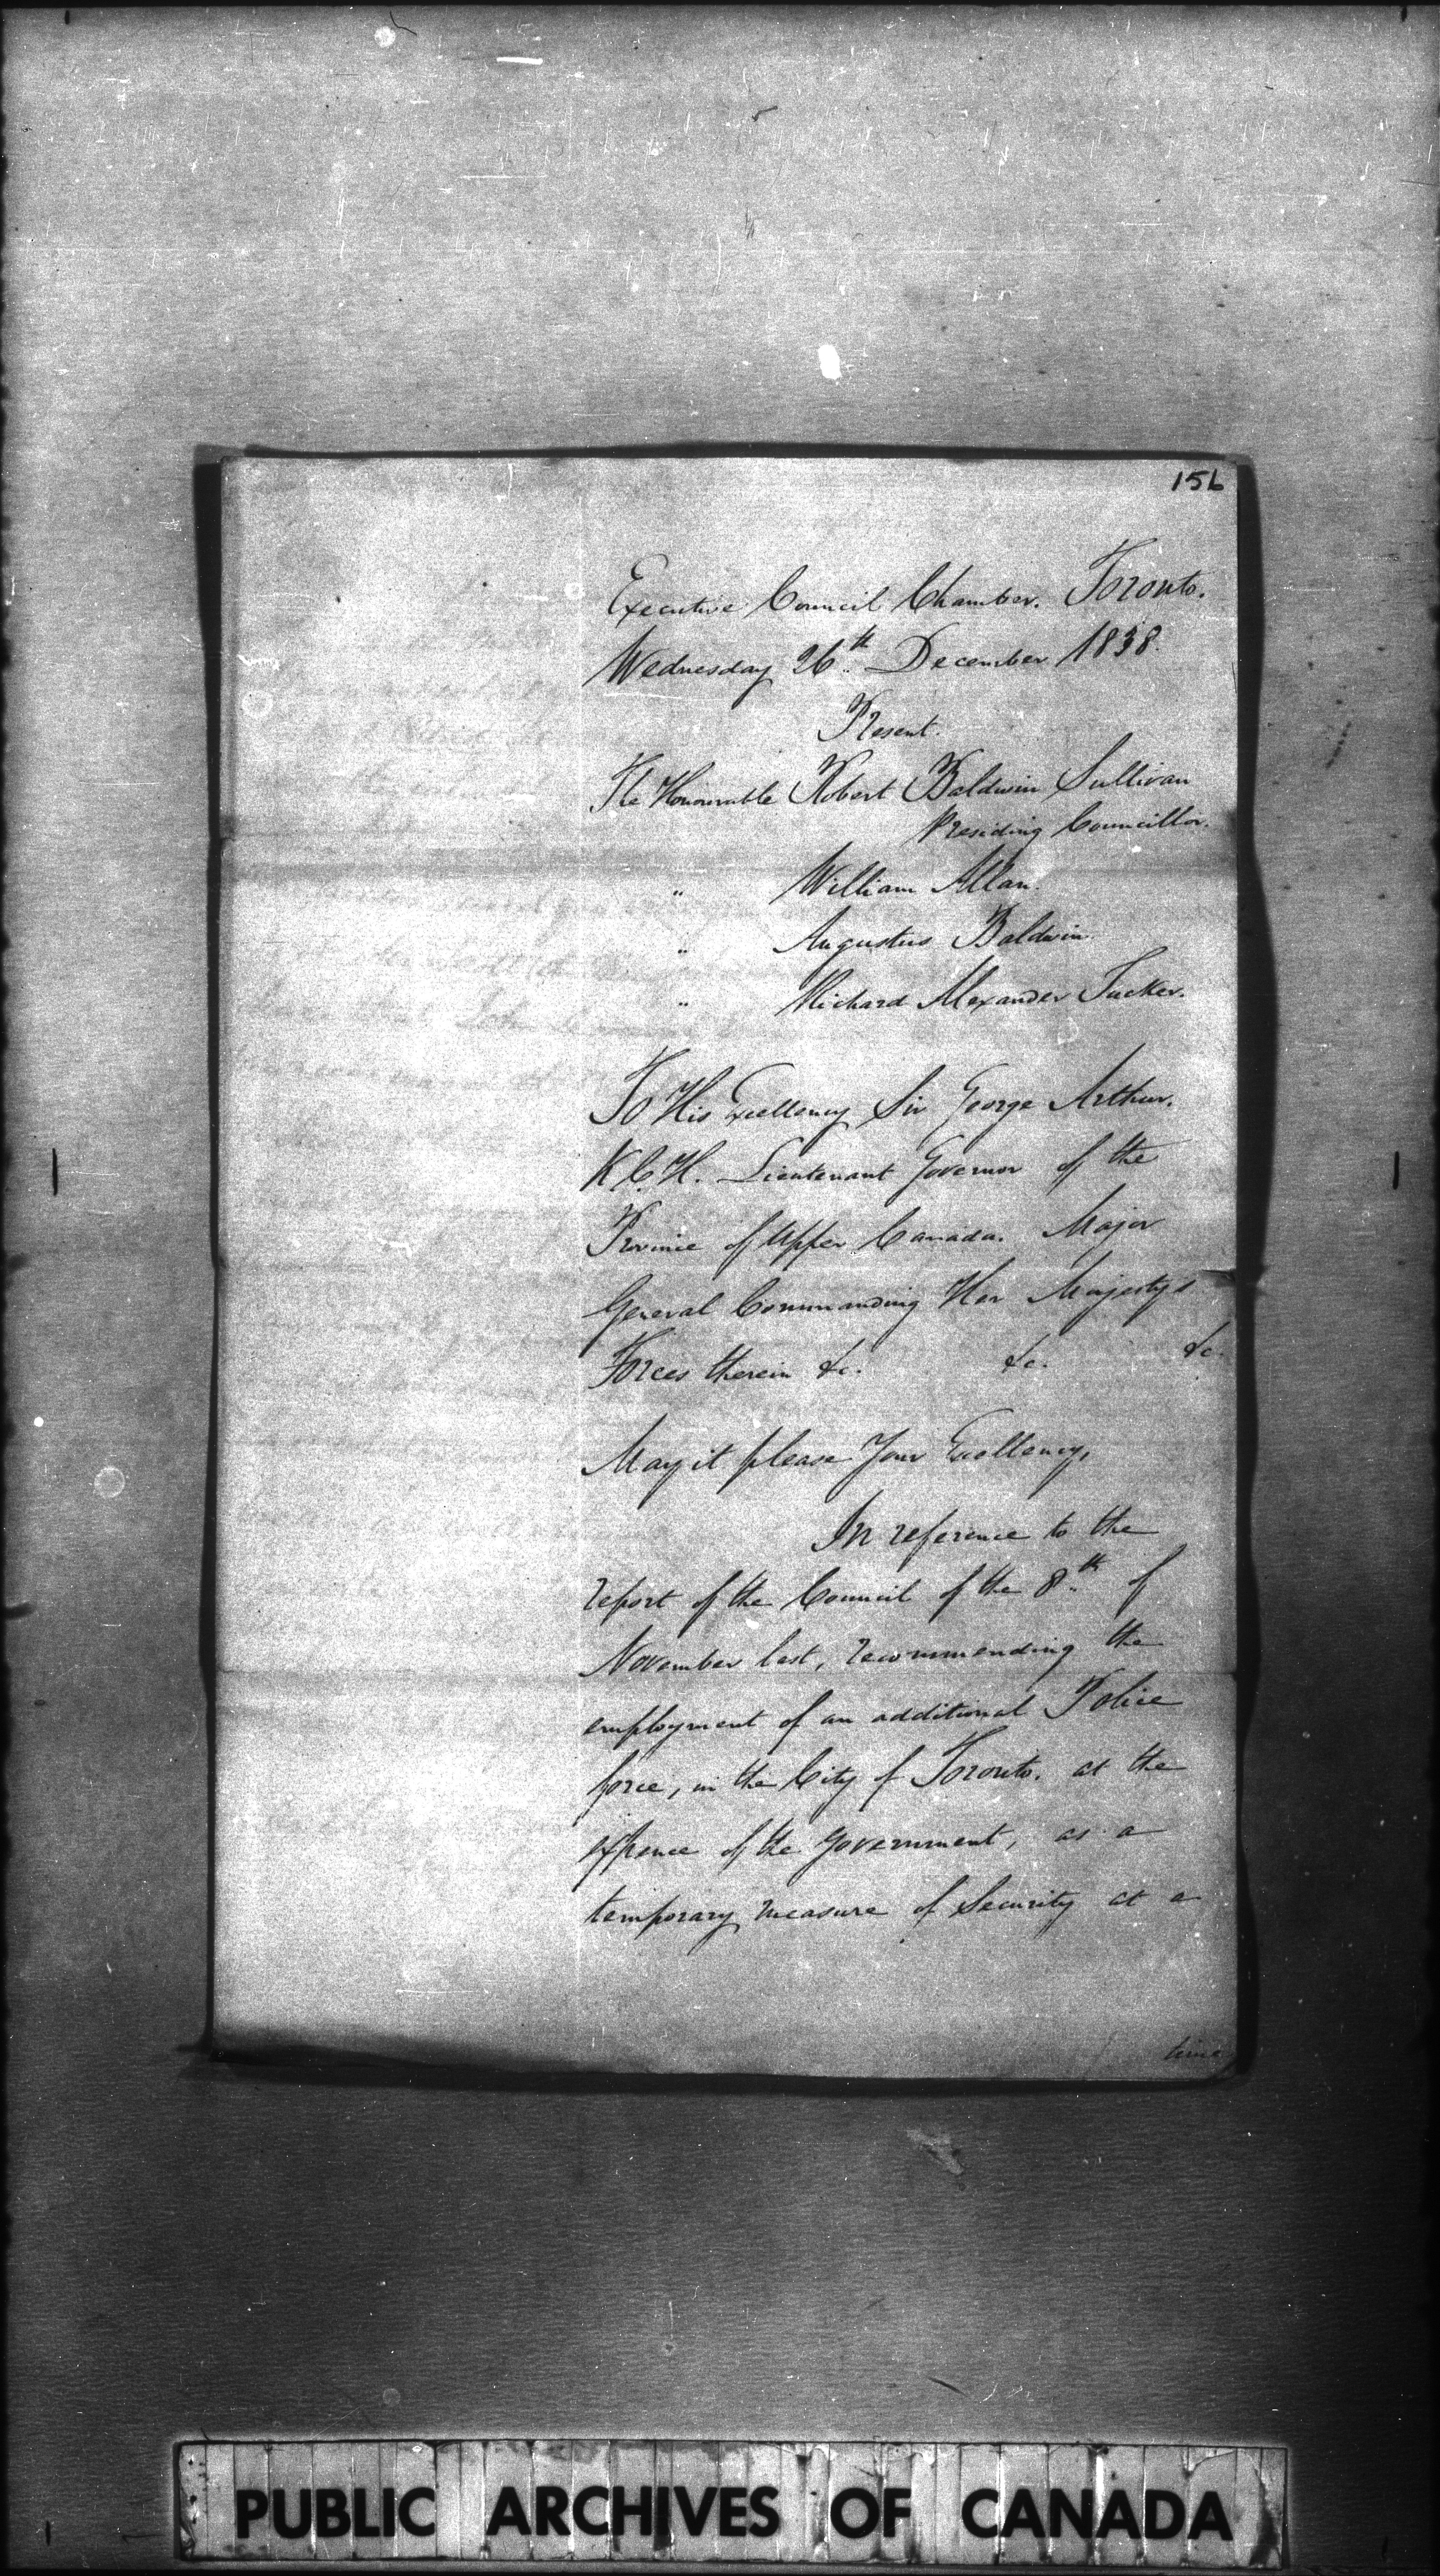 156
Executive Council Chamber. Toronto.
Wednesday 26th December 1838.
Present.
The Honourable Robert Baldwin Sullivan
Presiding Councillor.
" William Allan.
" Augustus Baldwin.
" Richard Alexander Tucker.
To His Excellency Sir George Arthur.
K.C.H. Lieutenant Governor of the
Province of Upper Canada. Major
General Commanding Her Majesty's
Forces therein &c. &c. &c.
May it please Your Excellency,
In reference to the
report of the Council of the 8th of
November last, recommending the
employment of an additional Police
force, in the City of Toronto. at the
expence of the Government, as a
temporary measure of Security at a
time
PUBLIC ARCHIVES OF CANADA